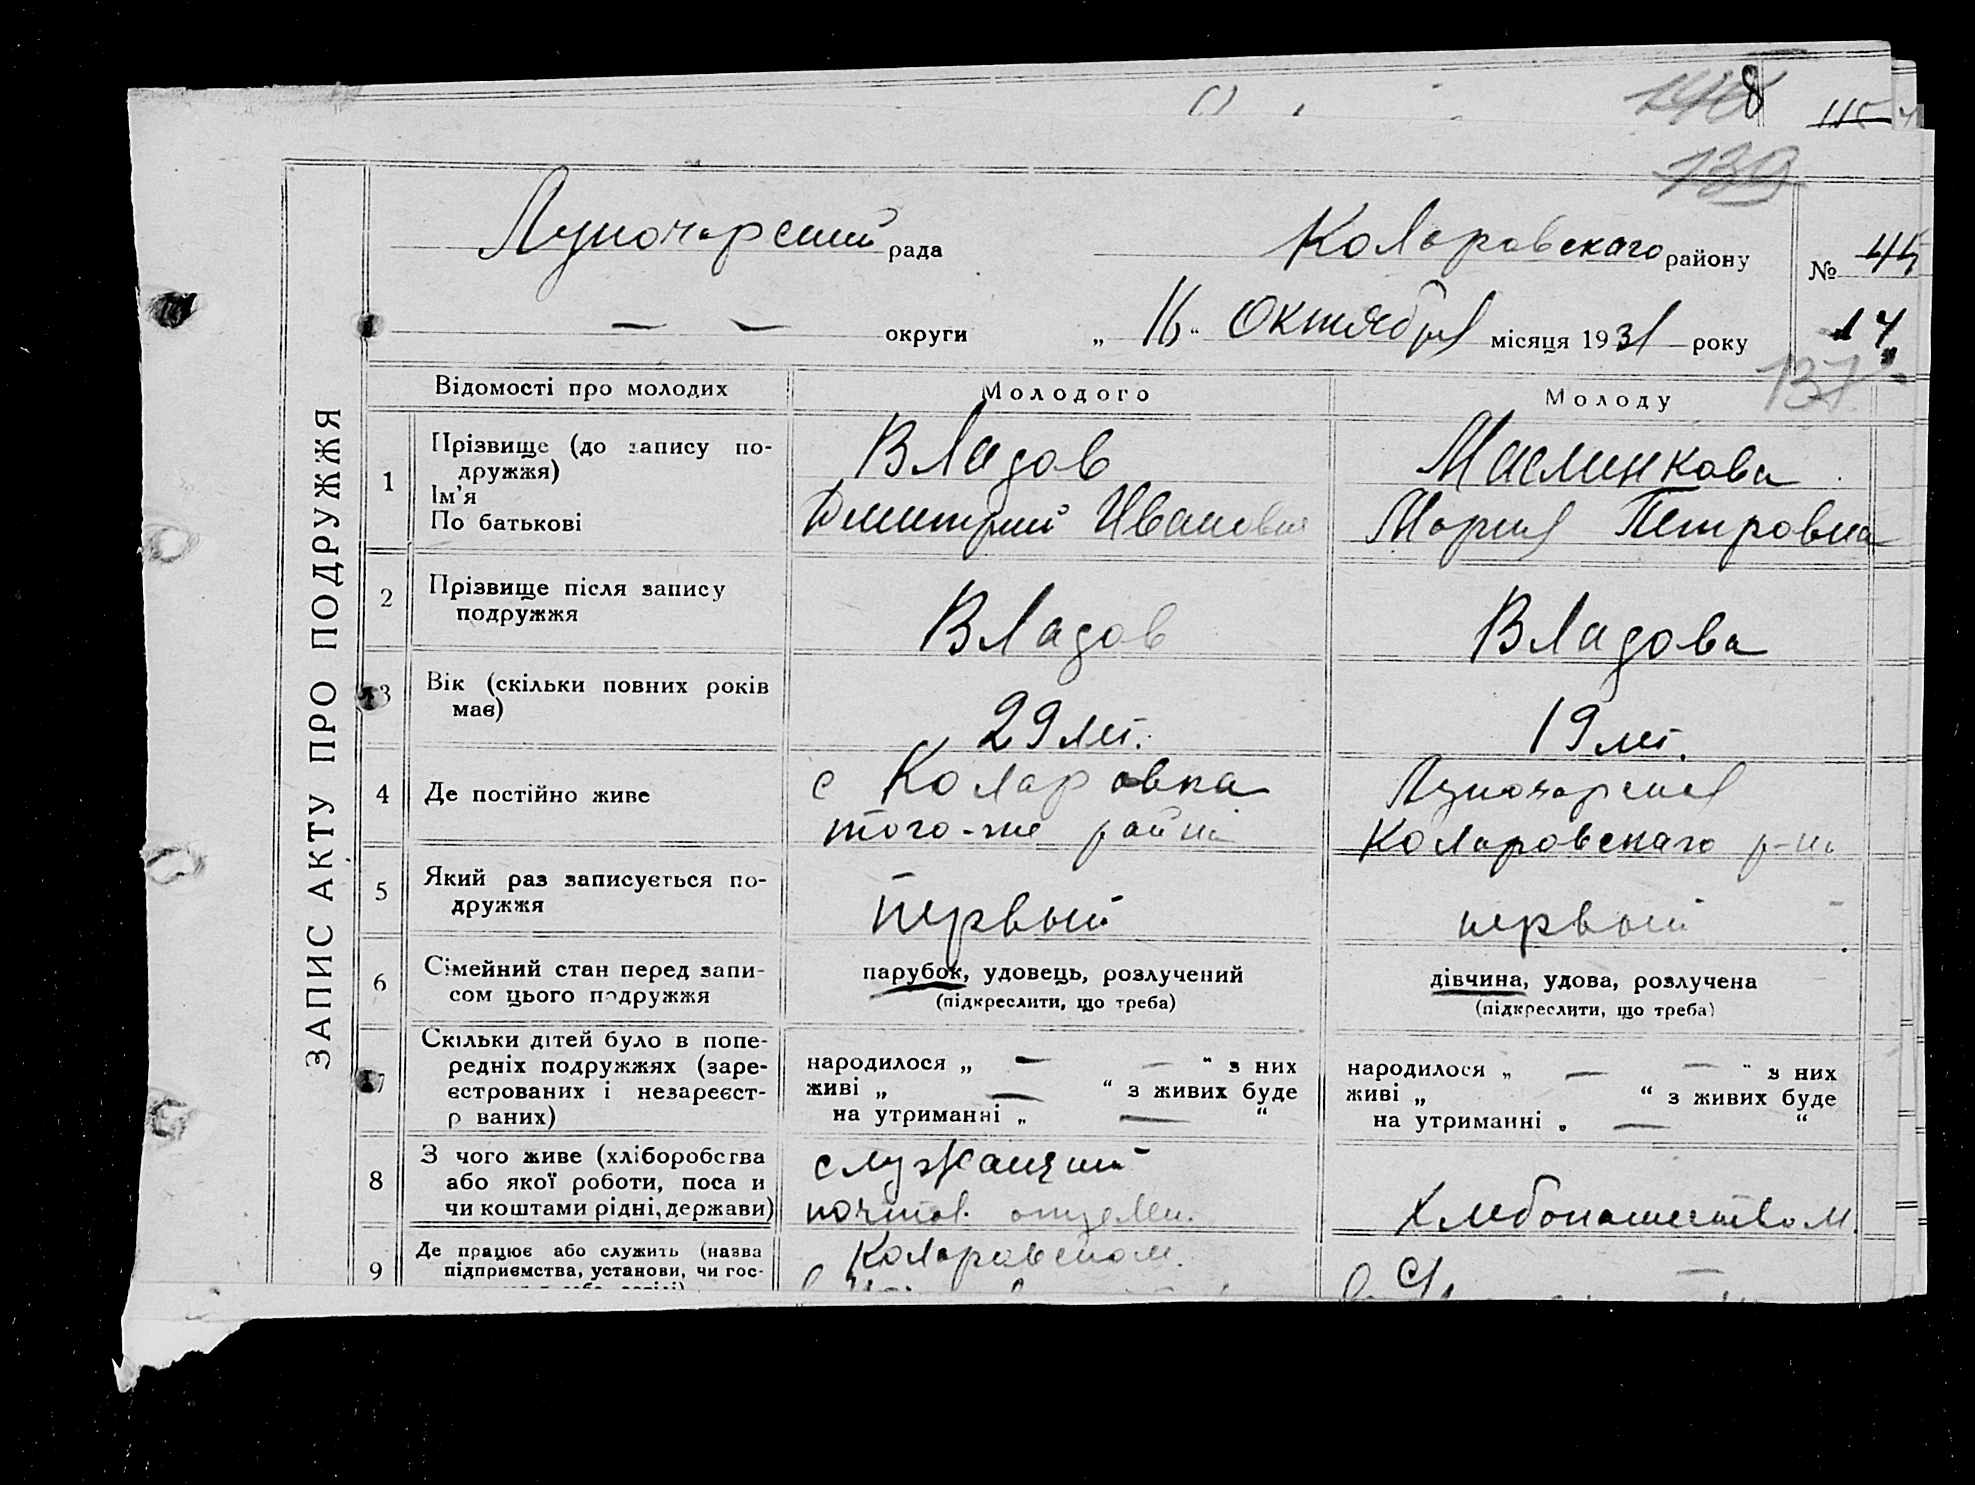 148
115
139
Луночарский рада Коларовскаго району № 45
— — округи „ 16 “ Октября місяця 1931 року 14
137
ЗАПИС АКТУ ПРО ПОДРУЖЖЯ
Відомості про молодих Молодого Молоду
1 Прізвище (до запису по-
дружжя)
Ім'я
По батькові
Владов
Дмитрий Иванович
Маслинкова
Мария Петровна
2 Прізвище після запису
подружжя
Владов
Владова
3 Вік (скільки повних років
має)
29 лет.
19 лет.
4 Де постійно живе
с Коларовка
того-же района
Луночарская
Коларовскаго р-на
5 Який раз записується по-
дружжя
Первый
первый
6 Сімейний стан перед запи-
сом цього подружжя
парубок, удовець, розлучений
(підкреслити, що треба)
дівчина, удова, розлучена
(підкреслити, що треба)
7 Скільки дітей було в попе-
редніх подружжях (заре-
єстрованих і незареєст-
р ваних)
народилося „ — — “ з них
живі „ — “ з живих буде
на утриманні „ — “
народилося „ — — “ з них
живі „ “ з живих буде
на утриманні „ — “
8 З чого живе (хліборобства
або якої роботи, поса и
чи коштами рідні, держави)
служащий
почтов. отделен.
Хлебопашеством
9 Де працює або служить (назва
підприємства, установи, чи гос-
Коларовском